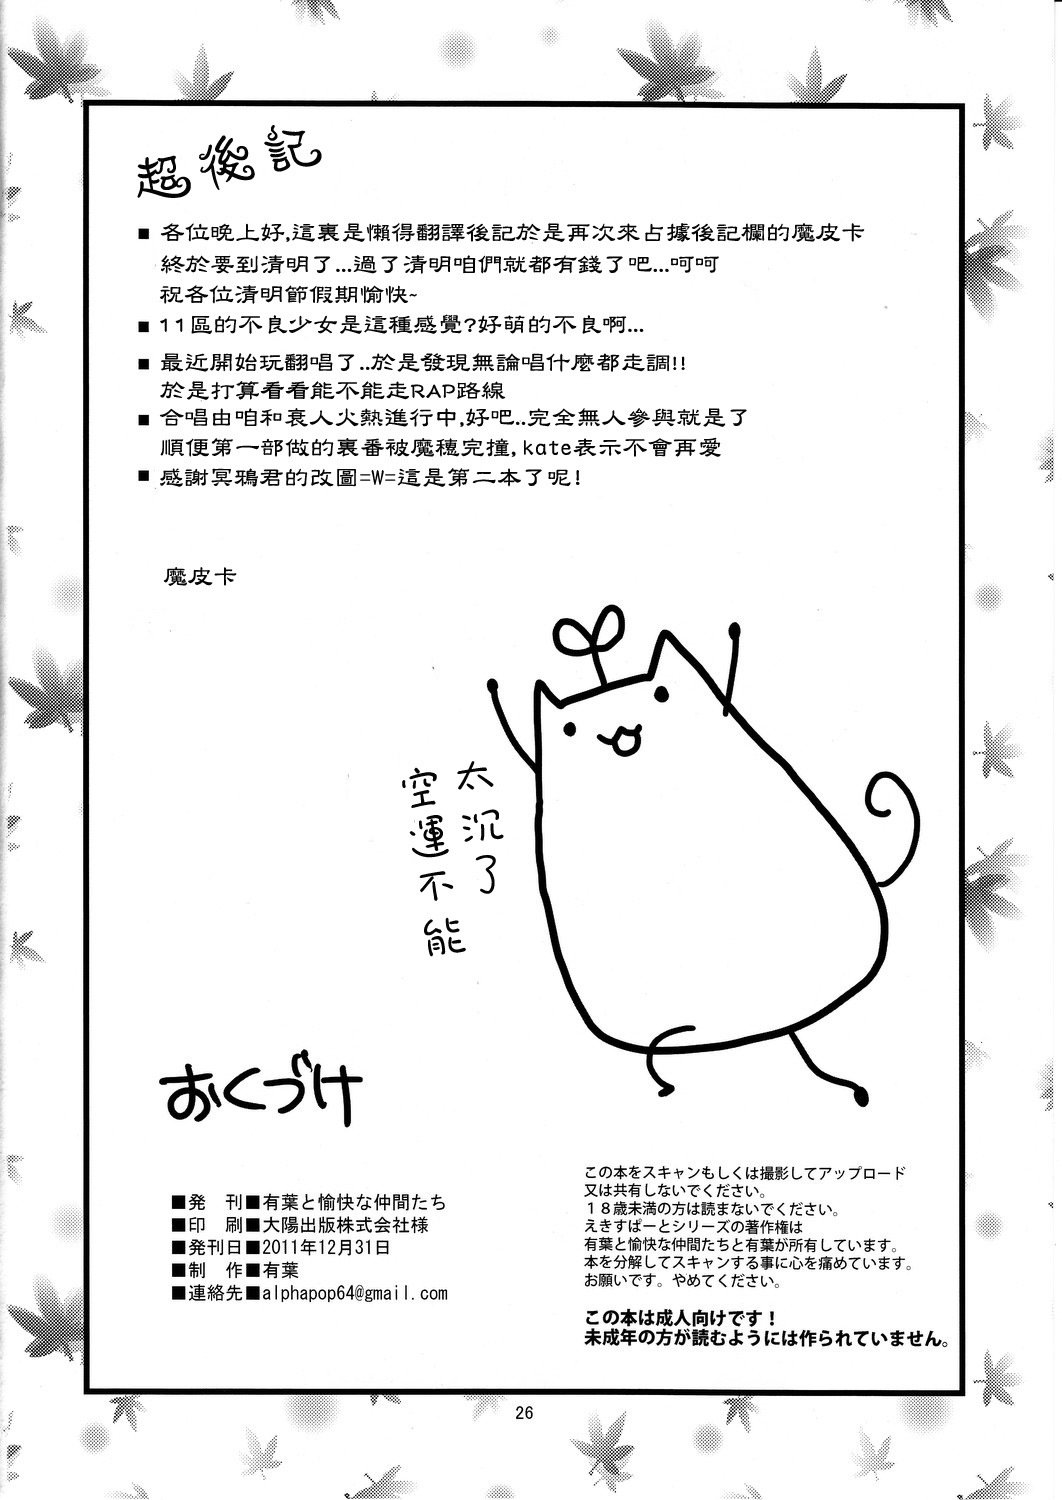 超後記
■ 各位晚上好,這裏是懶得翻譯後記於是再次來占據後記欄的魔皮卡
終於要到清明了...過了清明咱們就都有錢了吧...呵呵
祝各位清明節假期愉快~
■ 11區的不良少女是這種感覺?好萌的不良啊...
■ 最近開始玩翻唱了..於是發現無論唱什麼都走調!!
於是打算看看能不能走RAP路線
■ 合唱由咱和衰人火熱進行中,好吧..完全無人參與就是了
順便第一部做的裏番被魔穗完撞,kate表示不會再愛
■ 感謝冥鴉君的改圖=W=這是第二本了呢!
魔皮卡
太沉了
空運不能
おくづけ
■発　刊■有葉と愉快な仲間たち
■印　刷■大陽出版株式会社様
■発刊日■2011年12月31日
■制　作■有葉
■連絡先■alphapop64@gmail.com
この本をスキャンもしくは撮影してアップロード
又は共有しないでください。
１８歳未満の方は読まないでください。
えきすぱーとシリーズの著作権は
有葉と愉快な仲間たちと有葉が所有しています。
本を分解してスキャンする事に心を痛めています。
お願いです。やめてください。
この本は成人向けです！
未成年の方が読むようには作られていません。
26